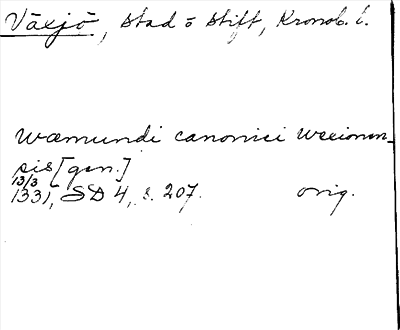 Växjö, stad o stift, Kronob. l.
Wæmundi canonici Wexionen-
sis [gen.]
13/3
1331, SD 4, s. 207. orig.